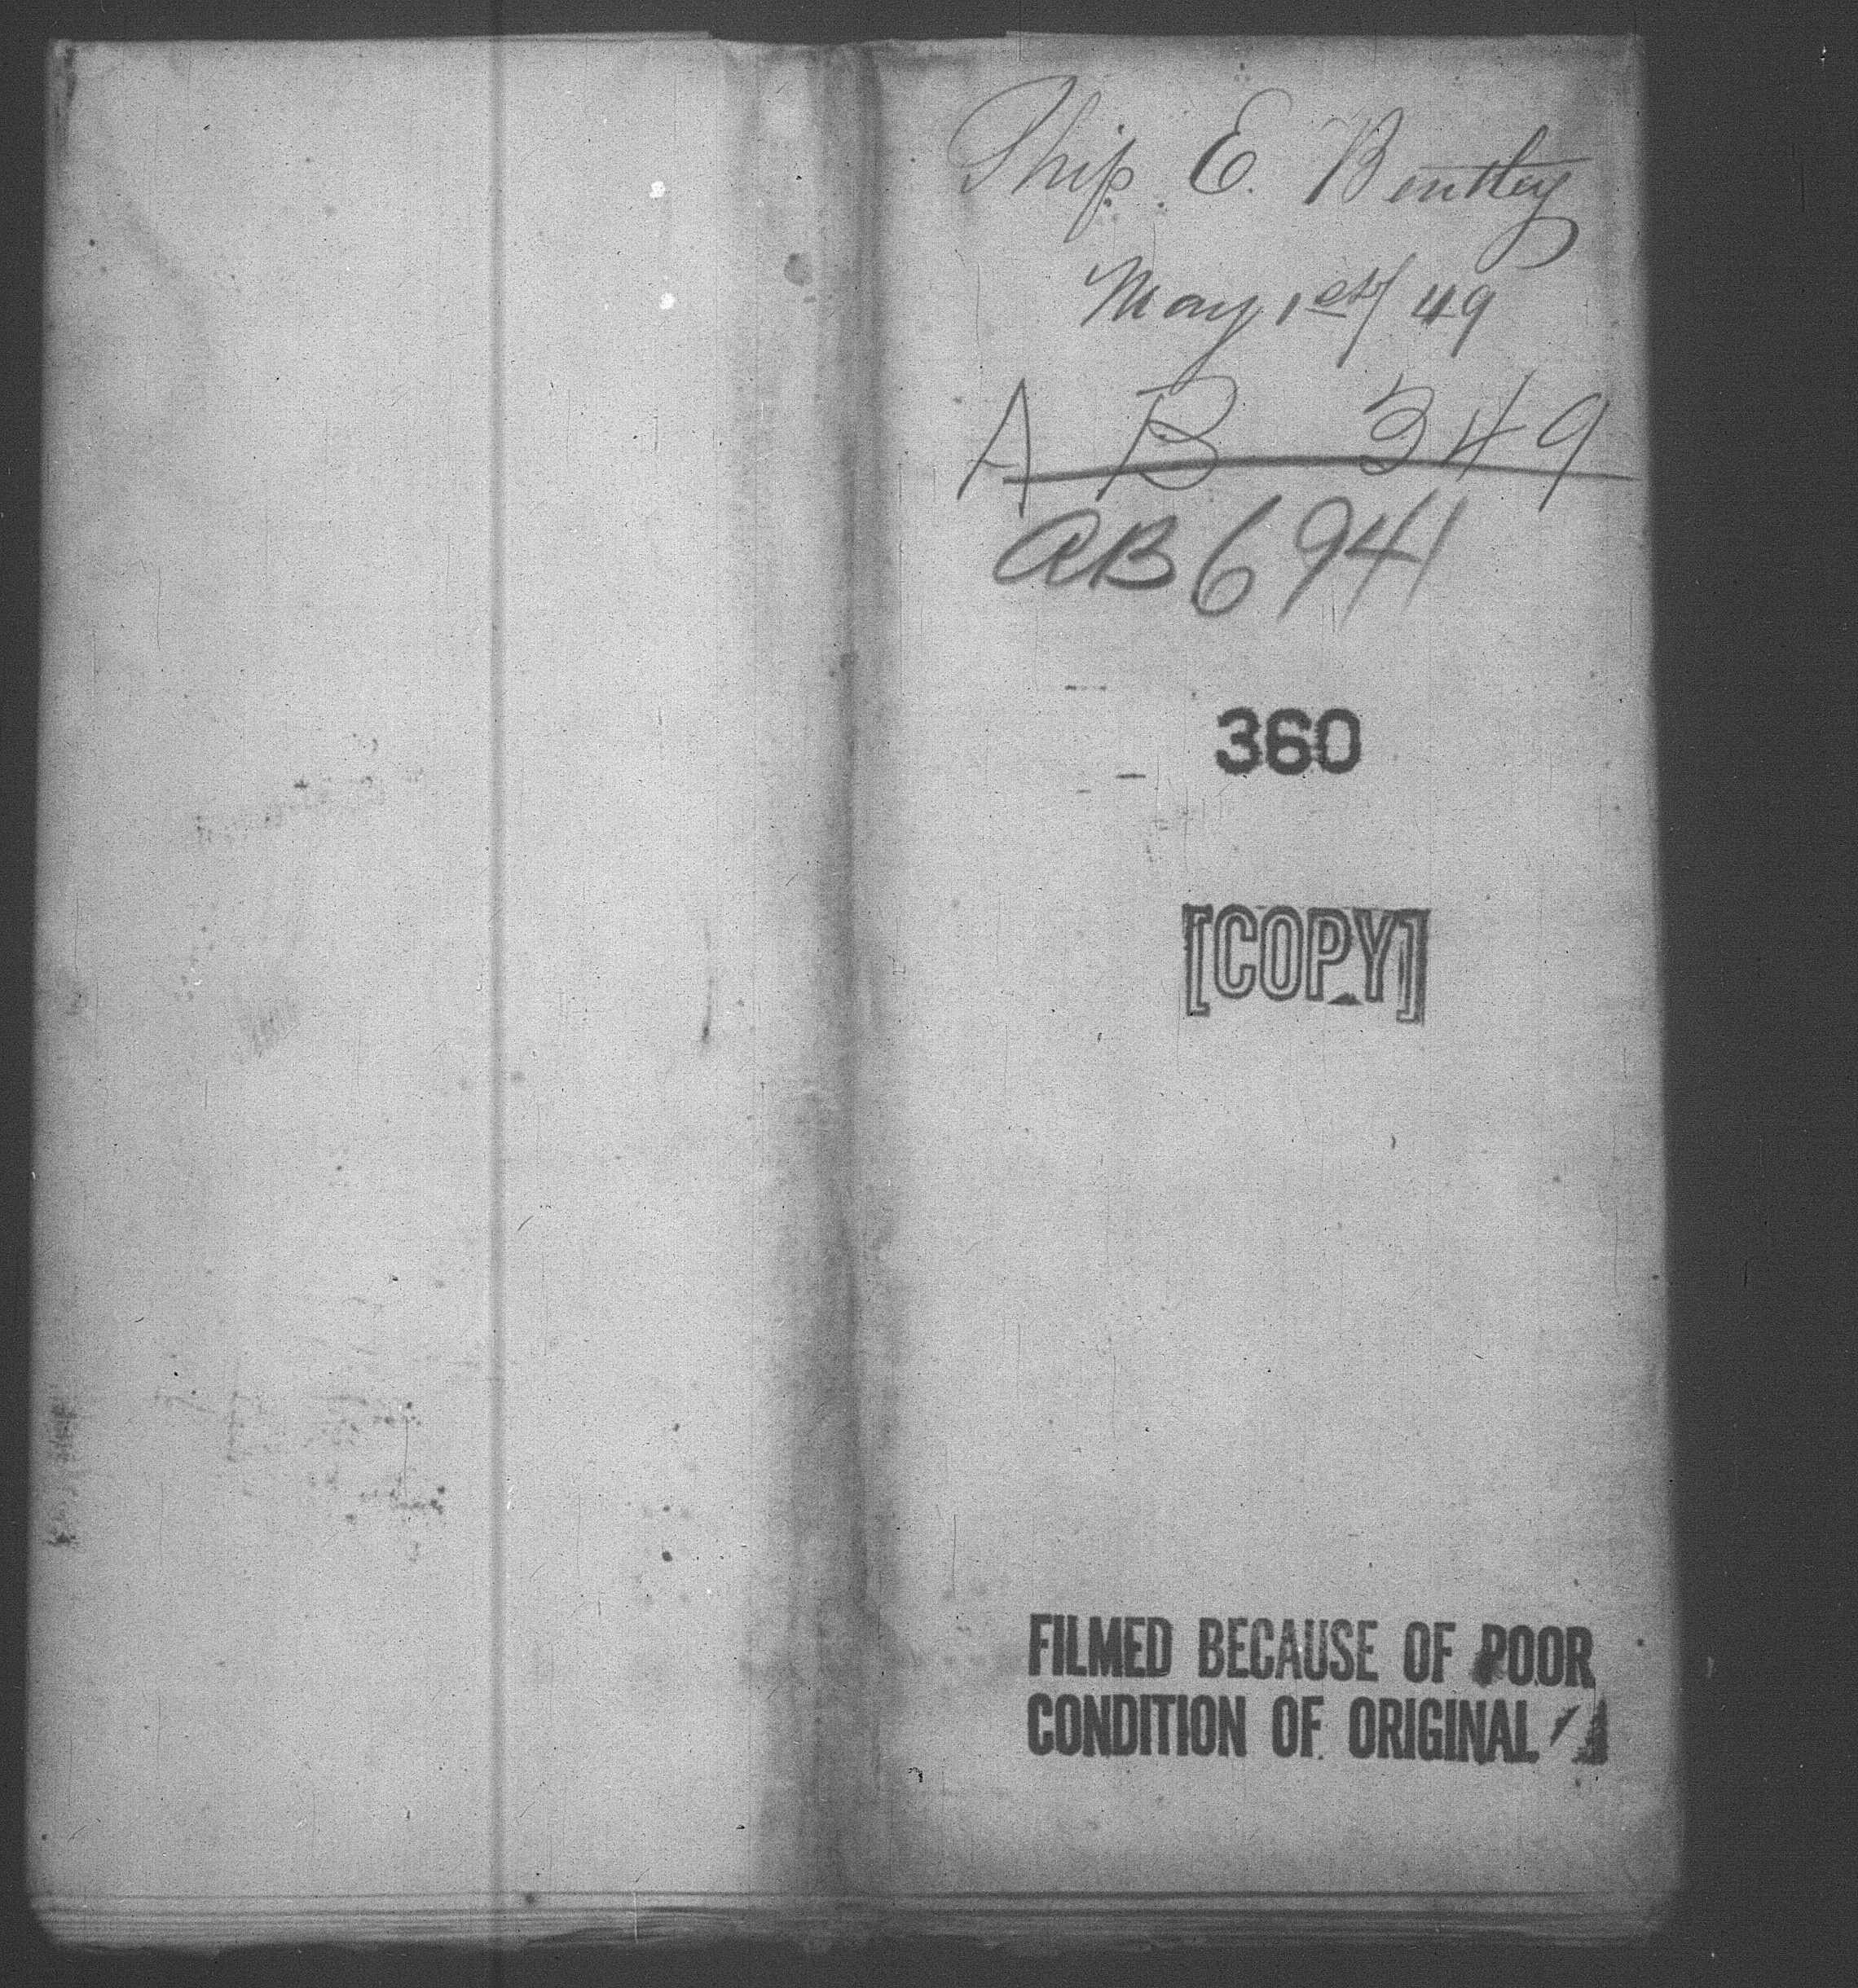 Ship. E. Bentley
May 1st/49
A B 349
AB 6941
360
[COPY]
FILMED BECAUSE OF POOR
CONDITION OF ORIGINAL